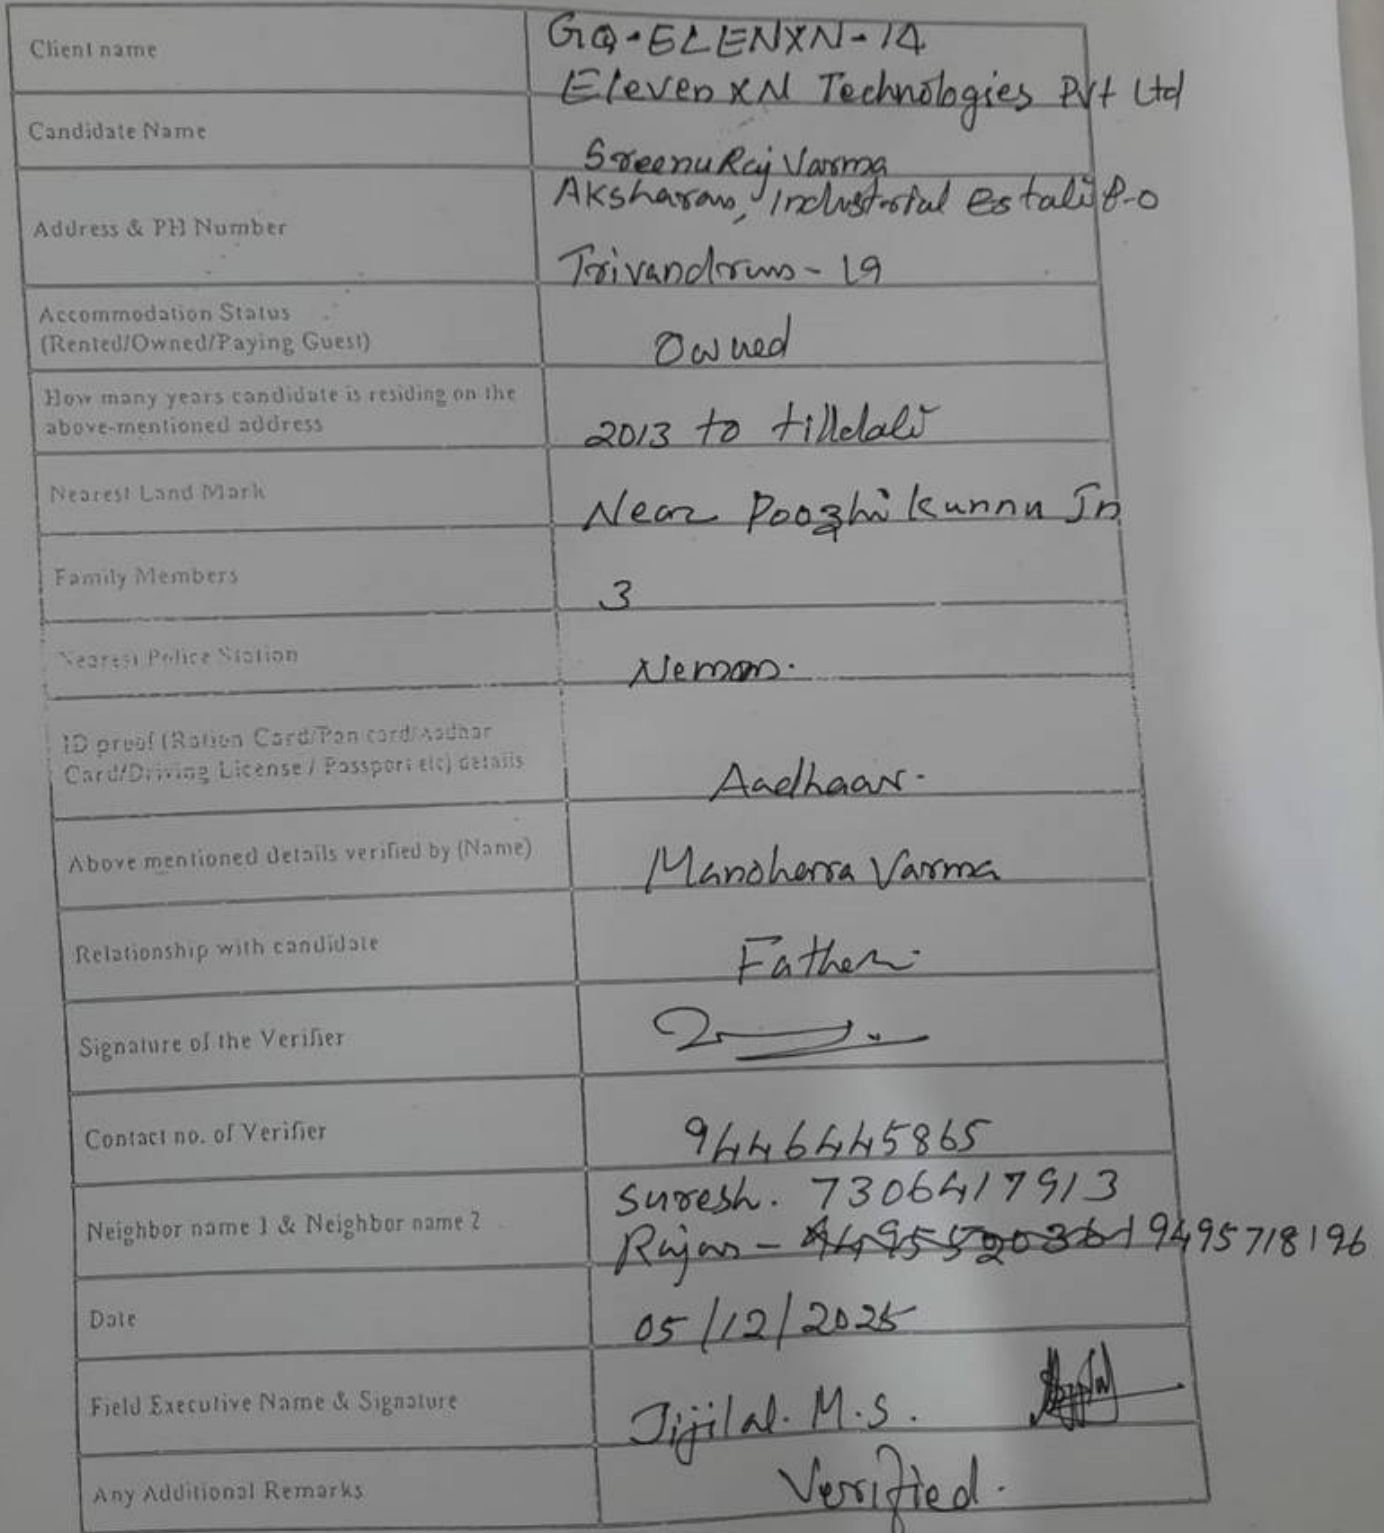 Client name
GQ-ELENXN-14
ElevenXN Technologies Pvt Ltd
Candidate Name
Sreenu Raj Varma
Address & PH Number
Aksharam, Industrial Estate P.O
Trivandrum - 19
Accommodation Status
(Rented/Owned/Paying Guest)
Owned
How many years candidate is residing on the
above-mentioned address
2013 to tilldate
Nearest Land Mark
Near Poozhikunnu Jn
Family Members
3
Nearest Police Station
Nemom.
ID proof (Ration Card/Pan card/Aadhar
Card/Driving License / Passport etc) details
Aadhaar.
Above mentioned details verified by (Name)
Manohara Varma
Relationship with candidate
Father.
Signature of the Verifier
Contact no. of Verifier
9446445865
Neighbor name 1 & Neighbor name 2
Suresh. 7306417913
Rajan - 9495718196
Date
05/12/2025
Field Executive Name & Signature
Jijilal. M.S.
Any Additional Remarks
Verified.